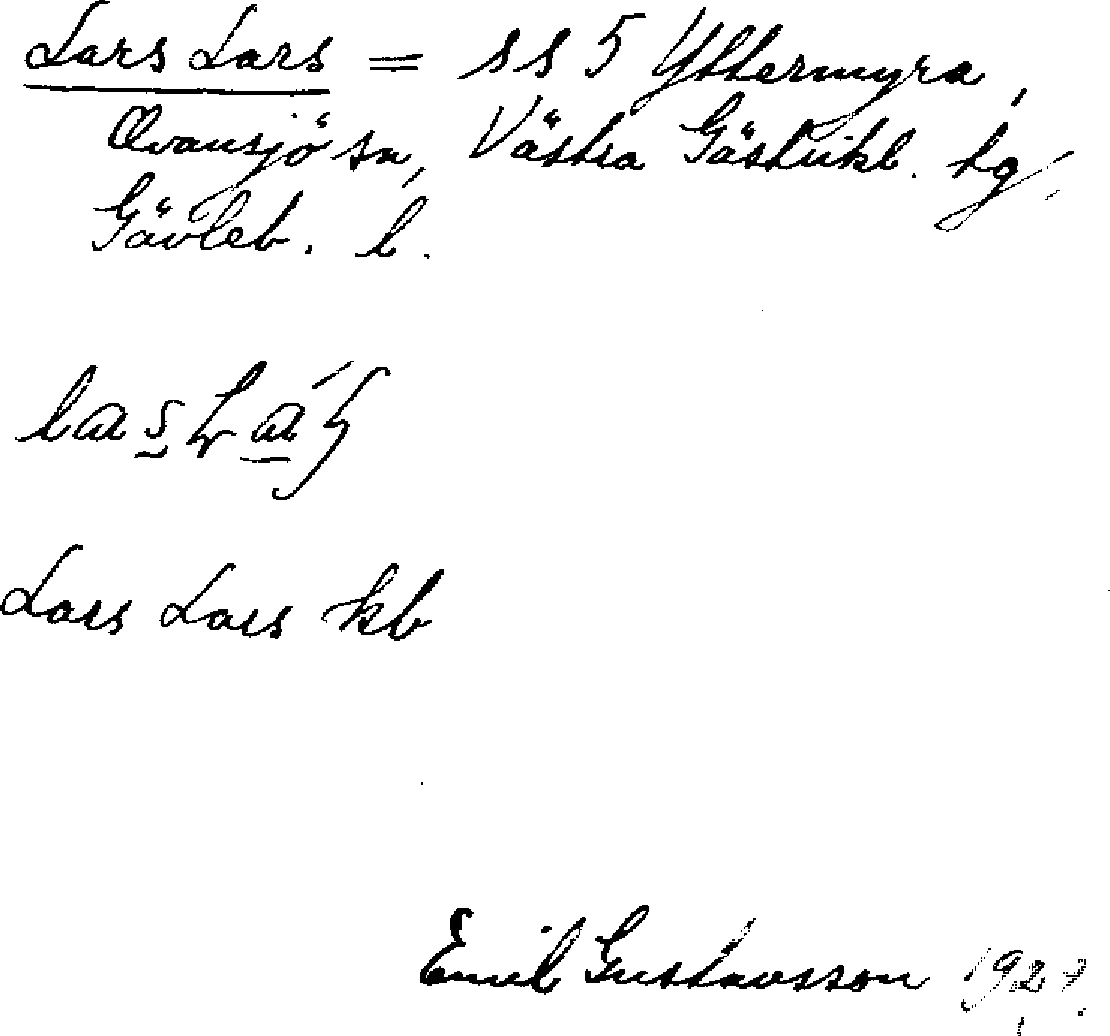 Lars Lars = ss 5 Yttermyra,
Ovansjö sn, Västra Gästrikl. tg,
Gävleb. l.
Lars Lars kb
Emil Gustavsson